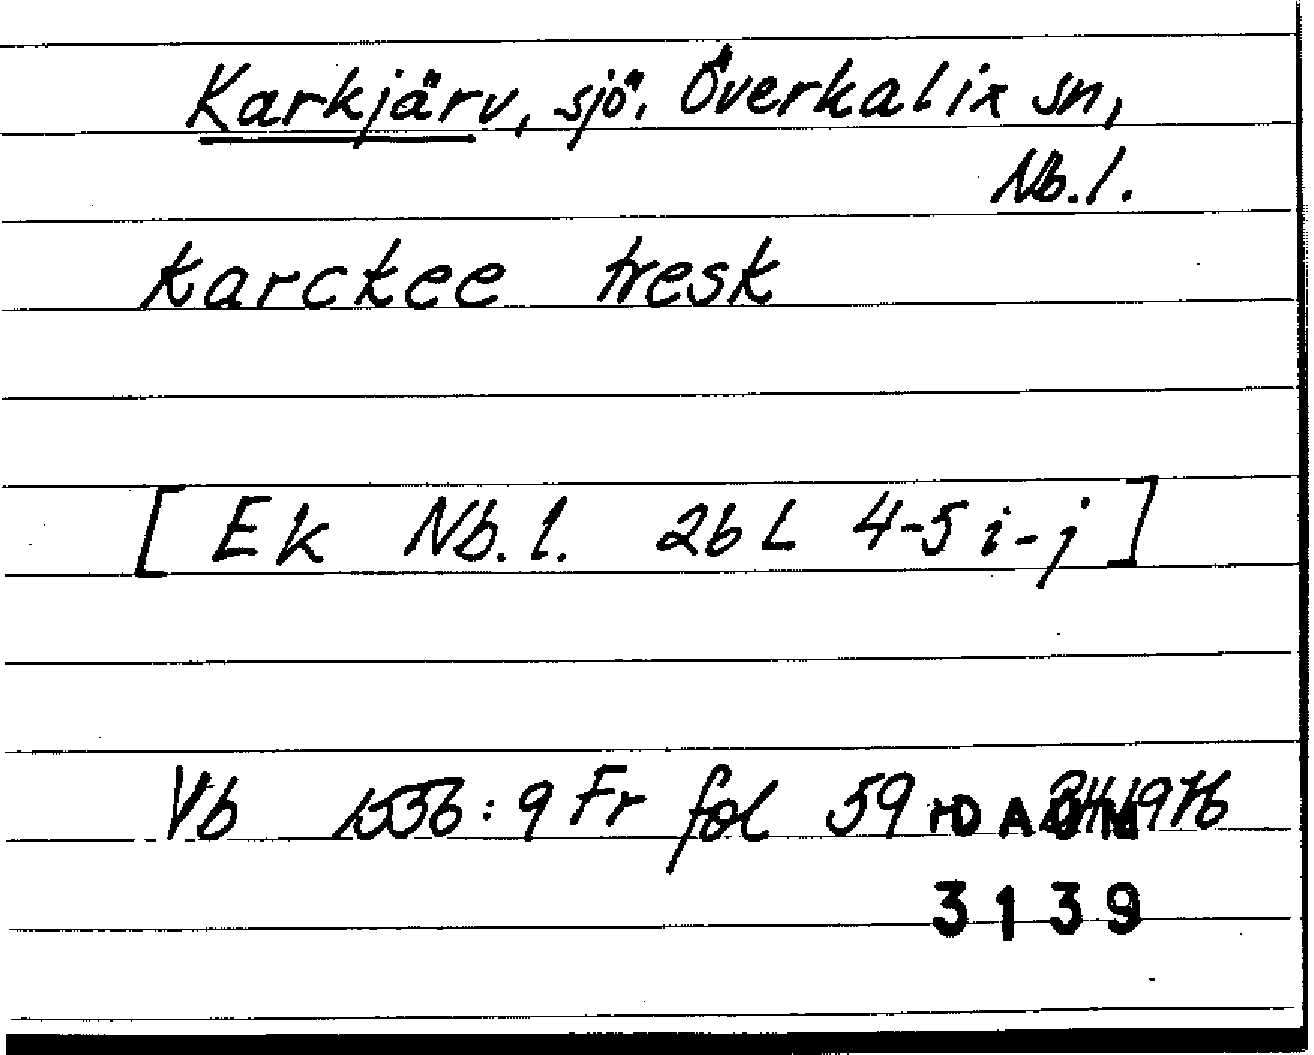 Karkjärv, sjö. Överkalix sn,
Nb.l.
karckee tresk
[ Ek Nb.l. 26 L 4-5 i-j ]
Vb 1556:9 Fr fol 59 1976
3139